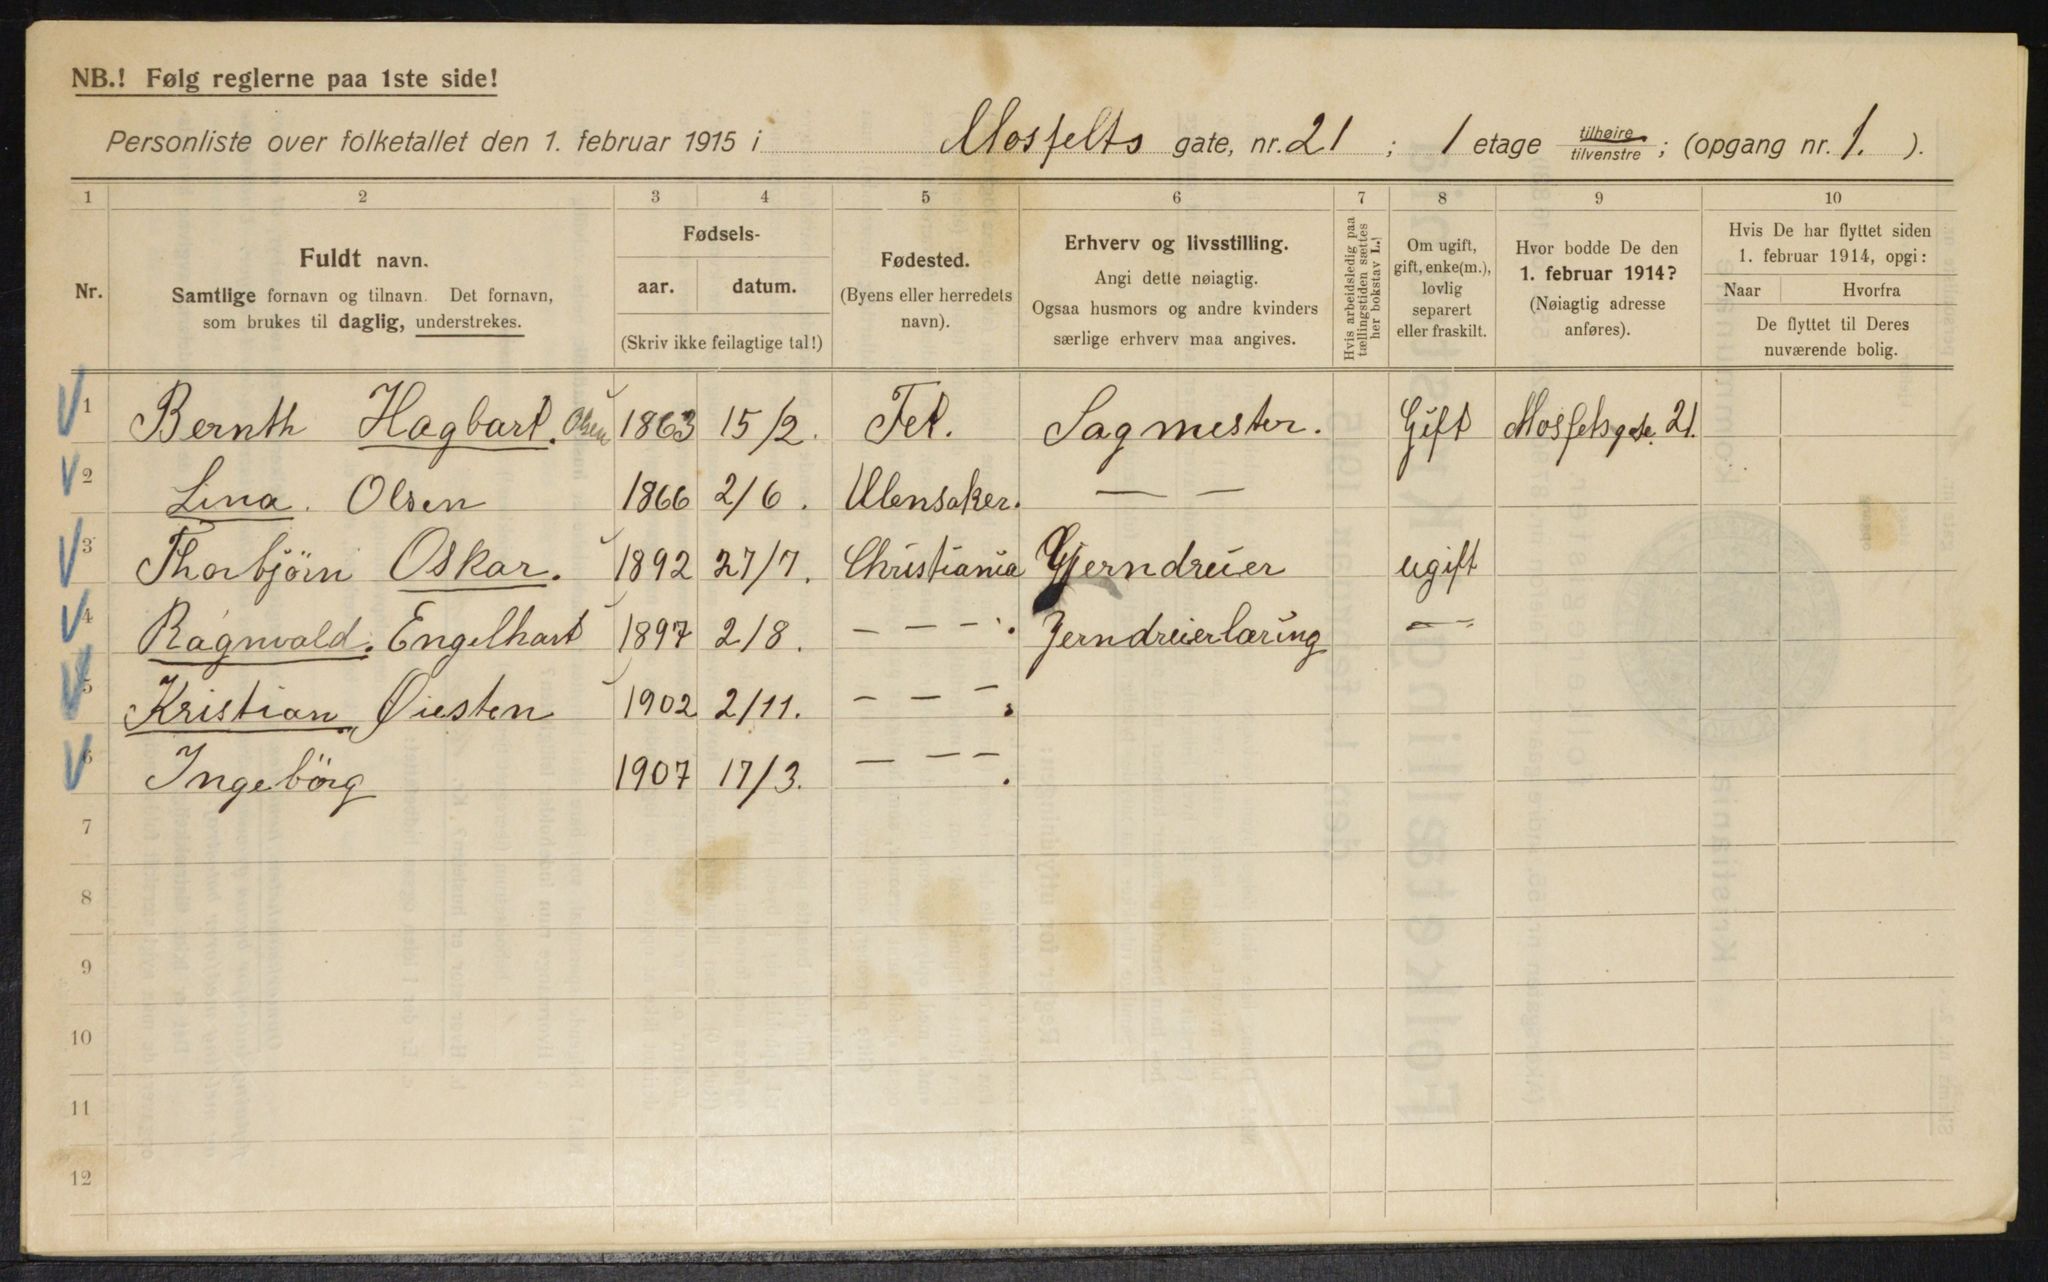 NB.! Følg reglerne paa 1ste side!
Personliste over folketallet den 1. februar 1915 i Mosfelts gate, nr. 21 ; 1 etage tilhøire/tilvenstre ; (opgang nr. 1. ).
1 2 3 4 5 6 7 8 9 10
Nr.
Fuldt navn.
Samtlige fornavn og tilnavn. Det fornavn,
som brukes til daglig, understrekes.
Fødsels-
aar. datum.
(Skriv ikke feilagtige tal!)
Fødested.
(Byens eller herredets
navn).
Erhverv og livsstilling.
Angi dette nøiagtig.
Ogsaa husmors og andre kvinders
særlige erhverv maa angives.
Hvis arbeidsledig paa
tællingstiden sættes
her bokstav L.!
Om ugift,
gift, enke(m.),
lovlig
separert
eller fraskilt.
Hvor bodde De den
1. februar 1914?
(Nøiagtig adresse
anføres).
Hvis De har flyttet siden
1. februar 1914, opgi:
Naar Hvorfra
De flyttet til Deres
nuværende bolig.
1 Bernth Hagbart. Olsen 1863 15/2. Fet. Sagmester. Gift Mosfetsgte. 21.
2 Lina. Olsen 1866 2/6. Ulensaker. — —
3 Thorbjörn Oskar. 1892 27/7. Christiania Gjerndreier ugift
4 Ragnvald. Engelhart 1897 2/8. — — — . Jerndreierlæring — "
5 Kristian Øiesten 1902 2/11. — — — .
6 Ingebörg 1907 17/3. — — — .
7
8
9
10
11
12